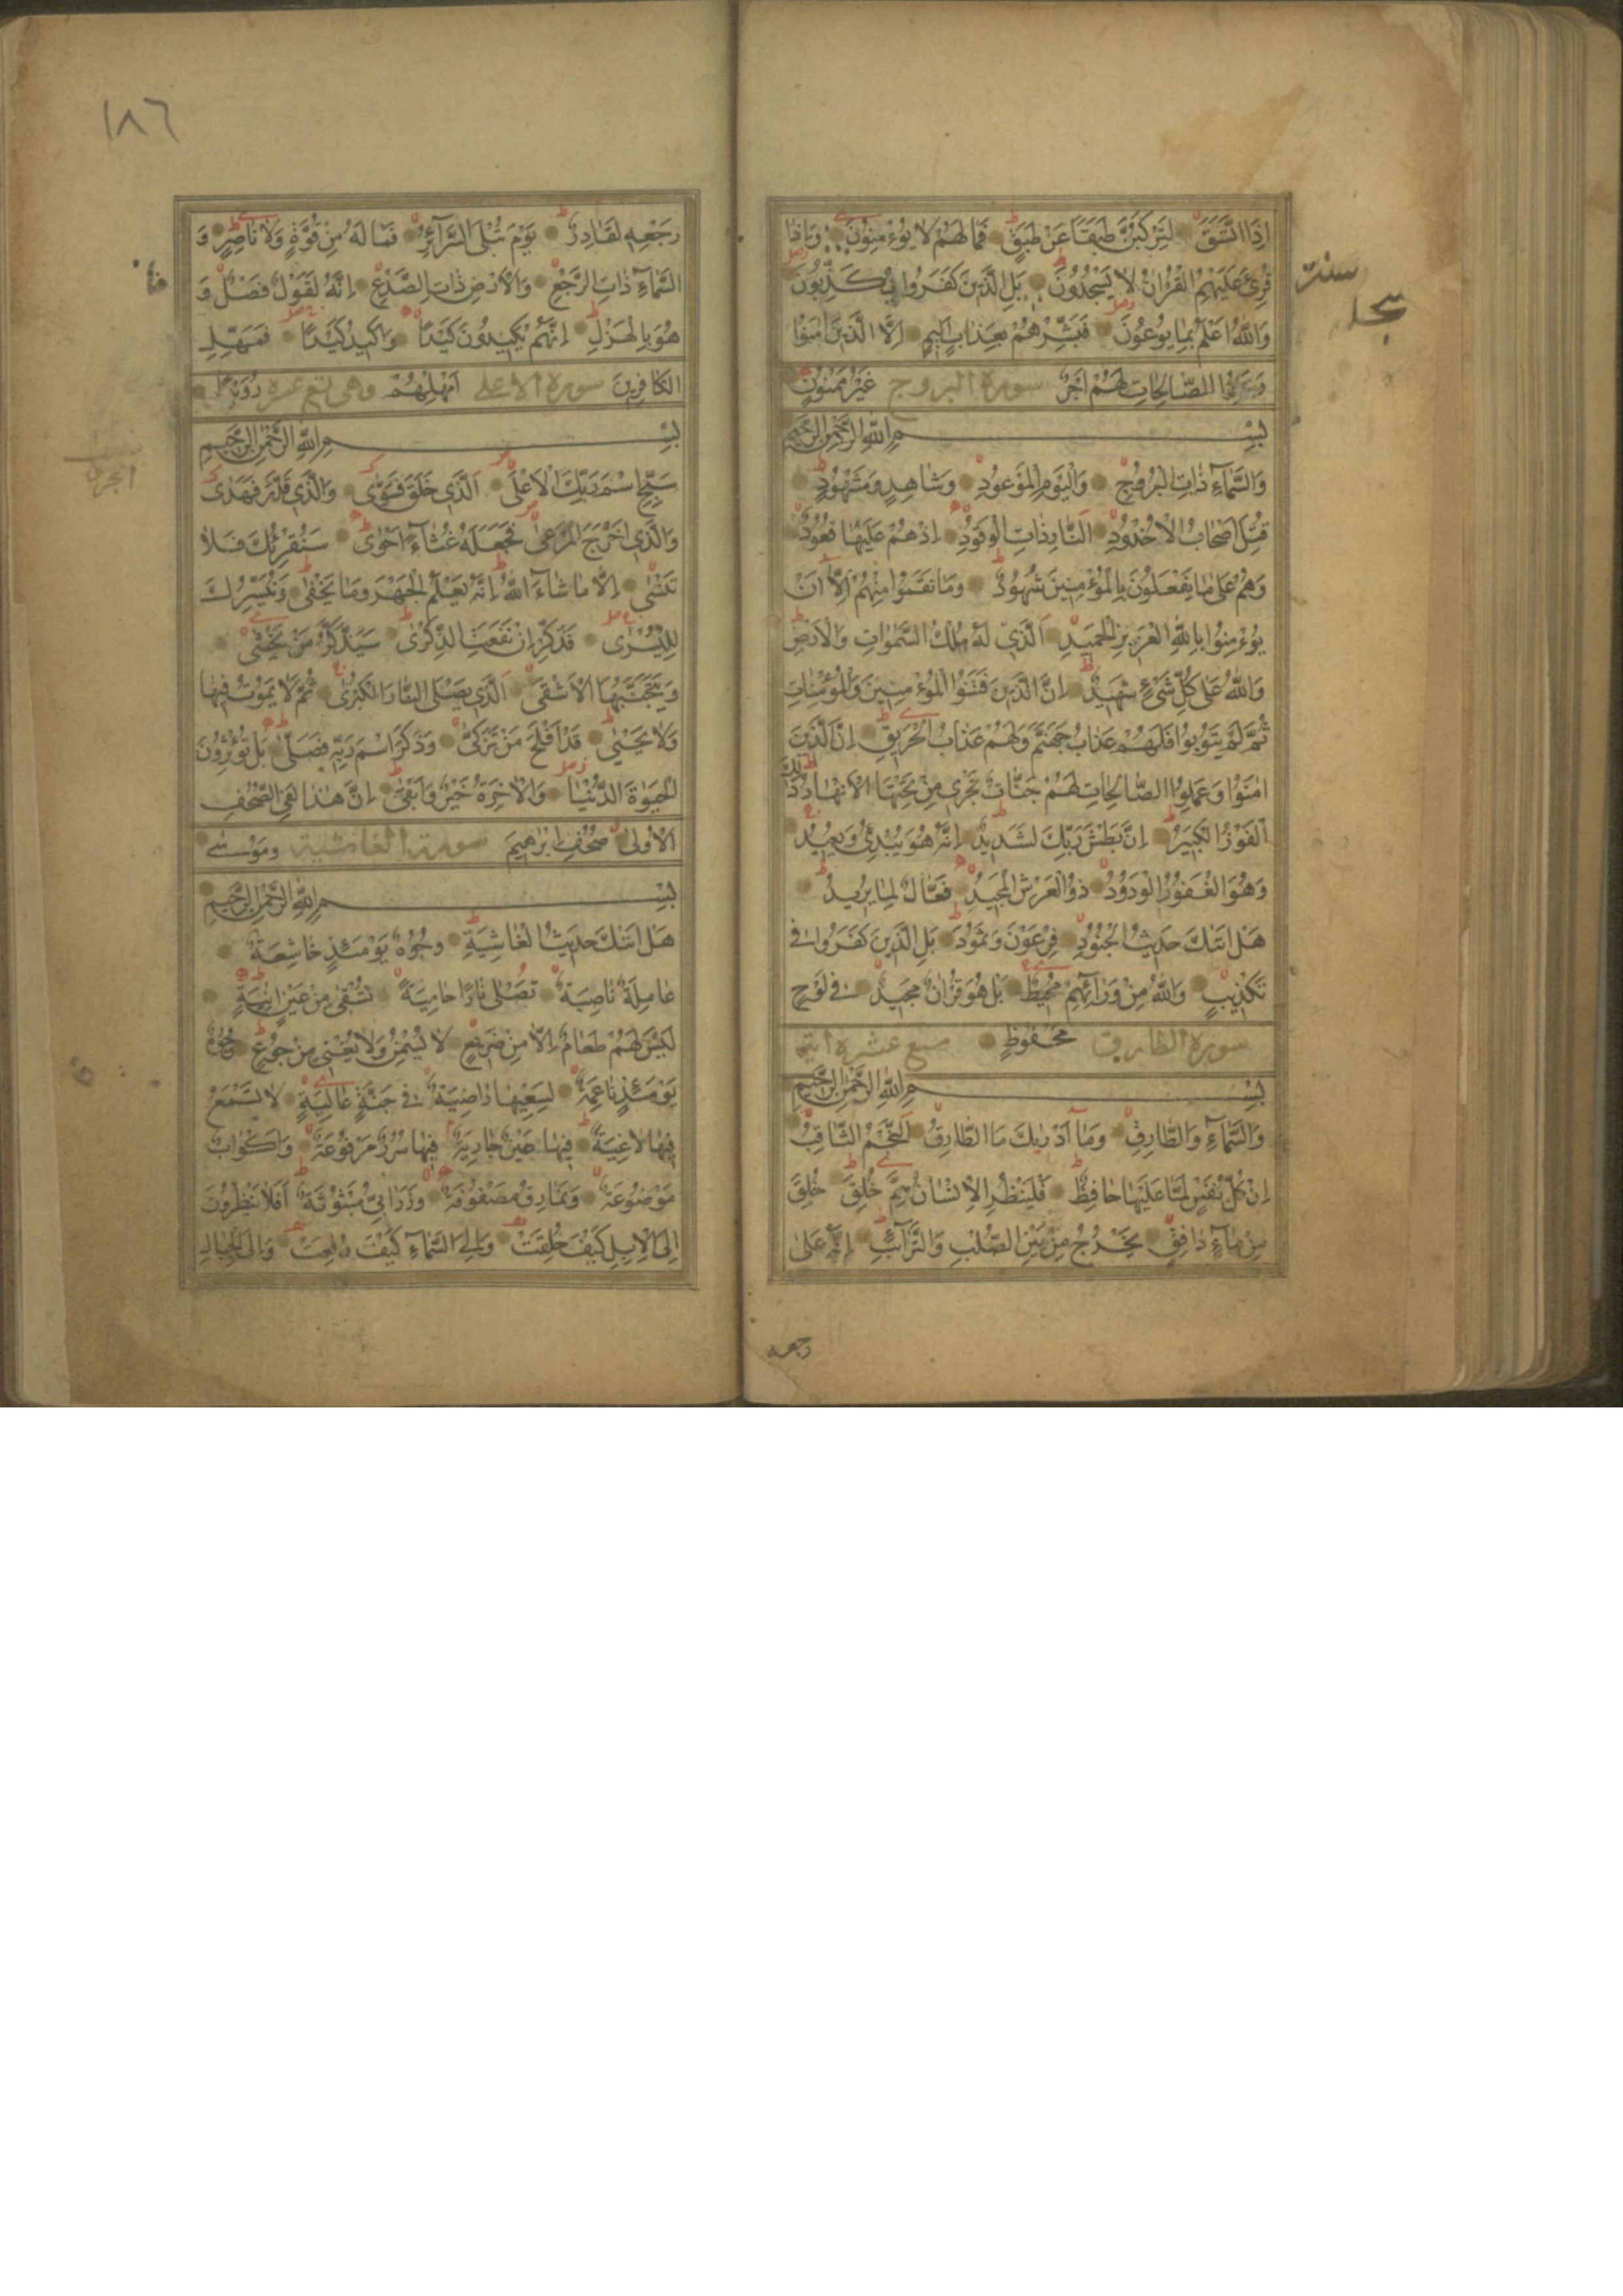 إِذَا اتَّسَقَ لَتَرْكَبُنَّ طَبَقًا عَنْ طَبَقٍ فَمَا لَهُمْ لَا يُؤْمِنُونَ وَإِذَا
قُرِئَ عَلَيْهِمُ الْقُرْاٰنُ لَا يَسْجُدُونَ بَلِ الَّذِينَ كَفَرُوا يُكَذِّبُونَ
وَاللّٰهُ أَعْلَمُ بِمَا يُوعُونَ فَبَشِّرْهُمْ بِعَذَابٍ أَلِيمٍ إِلَّا الَّذِينَ اٰمَنُوا
وَعَمِلُوا الصَّالِحَاتِ لَهُمْ أَجْرٌ سورة البروج غَيْرُ مَمْنُونٍ
بِسْمِ اللّٰهِ الرَّحْمٰنِ الرَّحِيمِ
وَالسَّمَآءِ ذَاتِ الْبُرُوجِ وَالْيَوْمِ الْمَوْعُودِ وَشَاهِدٍ وَمَشْهُودٍ
قُتِلَ أَصْحَابُ الْأُخْدُودِ النَّارِ ذَاتِ الْوَقُودِ إِذْ هُمْ عَلَيْهَا قُعُودٌ
وَهُمْ عَلٰى مَا يَفْعَلُونَ بِالْمُؤْمِنِينَ شُهُودٌ وَمَا نَقَمُوا مِنْهُمْ إِلَّا أَنْ
يُؤْمِنُوا بِاللّٰهِ الْعَزِيزِ الْحَمِيدِ الَّذِي لَهُ مُلْكُ السَّمٰوَاتِ وَالْأَرْضِ
وَاللّٰهُ عَلٰى كُلِّ شَيْءٍ شَهِيدٌ إِنَّ الَّذِينَ فَتَنُوا الْمُؤْمِنِينَ وَالْمُؤْمِنَاتِ
ثُمَّ لَمْ يَتُوبُوا فَلَهُمْ عَذَابُ جَهَنَّمَ وَلَهُمْ عَذَابُ الْحَرِيقِ إِنَّ الَّذِينَ
اٰمَنُوا وَعَمِلُوا الصَّالِحَاتِ لَهُمْ جَنَّاتٌ تَجْرِي مِنْ تَحْتِهَا الْأَنْهَارُ ذٰلِكَ
الْفَوْزُ الْكَبِيرُ إِنَّ بَطْشَ رَبِّكَ لَشَدِيدٌ إِنَّهُ هُوَ يُبْدِئُ وَيُعِيدُ
وَهُوَ الْغَفُورُ الْوَدُودُ ذُو الْعَرْشِ الْمَجِيدُ فَعَّالٌ لِمَا يُرِيدُ
هَلْ أَتٰىكَ حَدِيثُ الْجُنُودِ فِرْعَوْنَ وَثَمُودَ بَلِ الَّذِينَ كَفَرُوا فِي
تَكْذِيبٍ وَاللّٰهُ مِنْ وَرَآئِهِمْ مُحِيطٌ بَلْ هُوَ قُرْاٰنٌ مَجِيدٌ فِي لَوْحٍ
سورة الطارق مَحْفُوظٍ سبع عشرة اية
بِسْمِ اللّٰهِ الرَّحْمٰنِ الرَّحِيمِ
وَالسَّمَآءِ وَالطَّارِقِ وَمَا أَدْرٰيكَ مَا الطَّارِقُ النَّجْمُ الثَّاقِبُ
إِنْ كُلُّ نَفْسٍ لَمَّا عَلَيْهَا حَافِظٌ فَلْيَنْظُرِ الْإِنْسَانُ مِمَّ خُلِقَ خُلِقَ
مِنْ مَآءٍ دَافِقٍ يَخْرُجُ مِنْ بَيْنِ الصُّلْبِ وَالتَّرَآئِبِ إِنَّهُ عَلٰى
رجعه
١٨٦
رَجْعِهِ لَقَادِرٌ يَوْمَ تُبْلَى السَّرَآئِرُ فَمَا لَهُ مِنْ قُوَّةٍ وَلَا نَاصِرٍ وَ
السَّمَآءِ ذَاتِ الرَّجْعِ وَالْأَرْضِ ذَاتِ الصَّدْعِ إِنَّهُ لَقَوْلٌ فَصْلٌ وَ
هُوَ بِالْهَزْلِ إِنَّهُمْ يَكِيدُونَ كَيْدًا وَأَكِيدُ كَيْدًا فَمَهِّلِ
الْكَافِرِينَ سورة الاعلى أَمْهِلْهُمْ وهي تسع عشرة رُوَيْدًا
بِسْمِ اللّٰهِ الرَّحْمٰنِ الرَّحِيمِ
سَبِّحِ اسْمَ رَبِّكَ الْأَعْلَى الَّذِي خَلَقَ فَسَوّٰى وَالَّذِي قَدَّرَ فَهَدٰى
وَالَّذِي أَخْرَجَ الْمَرْعٰى فَجَعَلَهُ غُثَآءً أَحْوٰى سَنُقْرِئُكَ فَلَا
تَنْسٰى إِلَّا مَا شَآءَ اللّٰهُ إِنَّهُ يَعْلَمُ الْجَهْرَ وَمَا يَخْفٰى وَنُيَسِّرُكَ
لِلْيُسْرٰى فَذَكِّرْ إِنْ نَفَعَتِ الذِّكْرٰى سَيَذَّكَّرُ مَنْ يَخْشٰى
وَيَتَجَنَّبُهَا الْأَشْقَى الَّذِي يَصْلَى النَّارَ الْكُبْرٰى ثُمَّ لَا يَمُوتُ فِيهَا
وَلَا يَحْيٰى قَدْ أَفْلَحَ مَنْ تَزَكّٰى وَذَكَرَ اسْمَ رَبِّهِ فَصَلّٰى بَلْ تُؤْثِرُونَ
الْحَيٰوةَ الدُّنْيَا وَالْاٰخِرَةُ خَيْرٌ وَأَبْقٰى إِنَّ هٰذَا لَفِي الصُّحُفِ
الْأُولٰى صُحُفِ إِبْرٰهِيمَ سورة الغاشية وَمُوسٰى
بِسْمِ اللّٰهِ الرَّحْمٰنِ الرَّحِيمِ
هَلْ أَتٰىكَ حَدِيثُ الْغَاشِيَةِ وُجُوهٌ يَوْمَئِذٍ خَاشِعَةٌ
عَامِلَةٌ نَاصِبَةٌ تَصْلٰى نَارًا حَامِيَةً تُسْقٰى مِنْ عَيْنٍ اٰنِيَةٍ
لَيْسَ لَهُمْ طَعَامٌ إِلَّا مِنْ ضَرِيعٍ لَا يُسْمِنُ وَلَا يُغْنِي مِنْ جُوعٍ وُجُوهٌ
يَوْمَئِذٍ نَاعِمَةٌ لِسَعْيِهَا رَاضِيَةٌ فِي جَنَّةٍ عَالِيَةٍ لَا تَسْمَعُ
فِيهَا لَاغِيَةً فِيهَا عَيْنٌ جَارِيَةٌ فِيهَا سُرُرٌ مَرْفُوعَةٌ وَأَكْوَابٌ
مَوْضُوعَةٌ وَنَمَارِقُ مَصْفُوفَةٌ وَزَرَابِيُّ مَبْثُوثَةٌ أَفَلَا يَنْظُرُونَ
إِلَى الْإِبِلِ كَيْفَ خُلِقَتْ وَإِلَى السَّمَآءِ كَيْفَ رُفِعَتْ وَإِلَى الْجِبَالِ